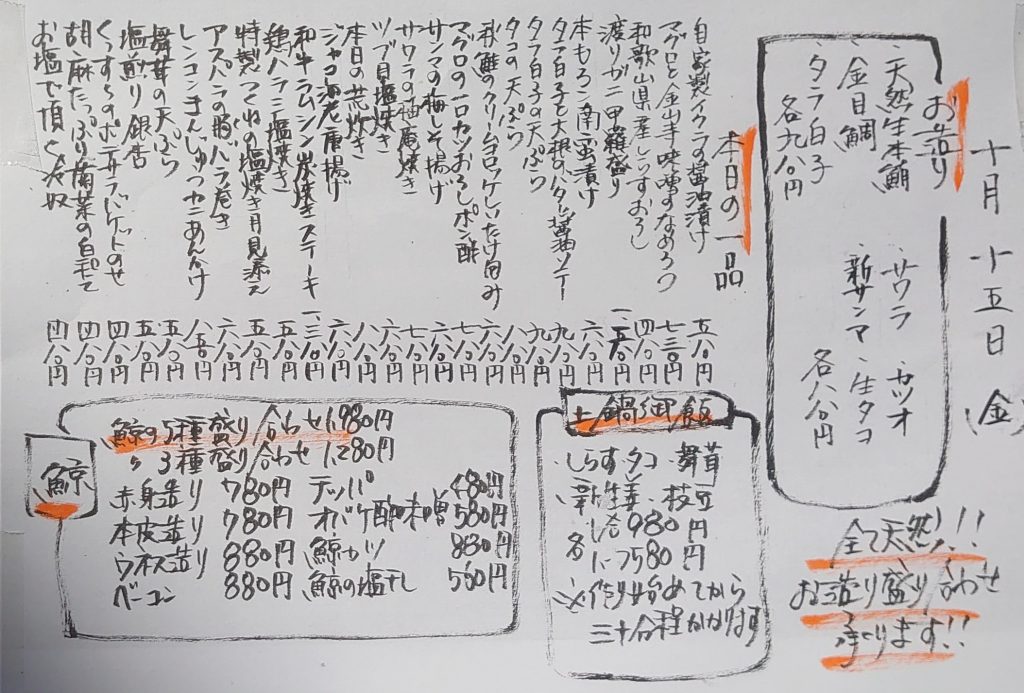 十月十五日(金)
お造り
・天然生本鮪
・金目鯛
・タラ白子
各九八〇円
・サワラ ・カツオ
・新サンマ ・生タコ
各八八〇円
全て天然!!
お造り盛り合わせ
承ります!!
本日の一品
自家製イクラの醤油漬け 五八〇円
マグロと金山寺味噌のなめろう 七三〇円
和歌山県産しらすおろし 四八〇円
渡りガニ甲羅盛り
本もろこ南蛮漬け 六八〇円
タラ白子と大根のバター醤油ソテー 九八〇円
タラ白子の天ぷら 九八〇円
タコの天ぷら 八八〇円
秋鮭のクリームコロッケしいたけ包み 六八〇円
マグロの一口カツおろしポン酢 七八〇円
サンマの梅しそ揚げ 六八〇円
サワラの柚庵焼き 七八〇円
ツブ貝塩焼き 八八〇円
本日の荒炊き 八八〇円
ジャコ海老唐揚げ 六八〇円
和牛ラムシン炭焼きステーキ 一、三八〇円
鶏ハラミ塩焼き 五八〇円
特製つくねの塩焼き月見添え 五八〇円
アスパラの豚バラ巻き 六八〇円
レンコンまんじゅうカニあんかけ 八五〇円
舞茸の天ぷら 五八〇円
塩煎り銀杏 五八〇円
くんすものポテサラバケットのせ 四八〇円
胡麻たっぷり菊菜の白和え 四八〇円
お塩で頂く冷奴 四八〇円
土鍋御飯
・しらす・タコ・舞茸
・新生姜・枝豆
各 一合980円
に つ580円
※作り始めてから
三十分程かかります
鯨
鯨の5種盛り合わせ1,980円
〃 3種盛り合わせ 1,280円
赤身造り 780円 テッパ 480円
本皮造り 780円 オバケ酢味噌 580円
ウネス造り 880円 鯨カツ 880円
ベーコン 880円 鯨の塩干し 580円